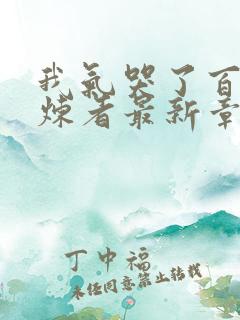 我气哭了百
炼者最新章
丁中福
未经同意禁止转载